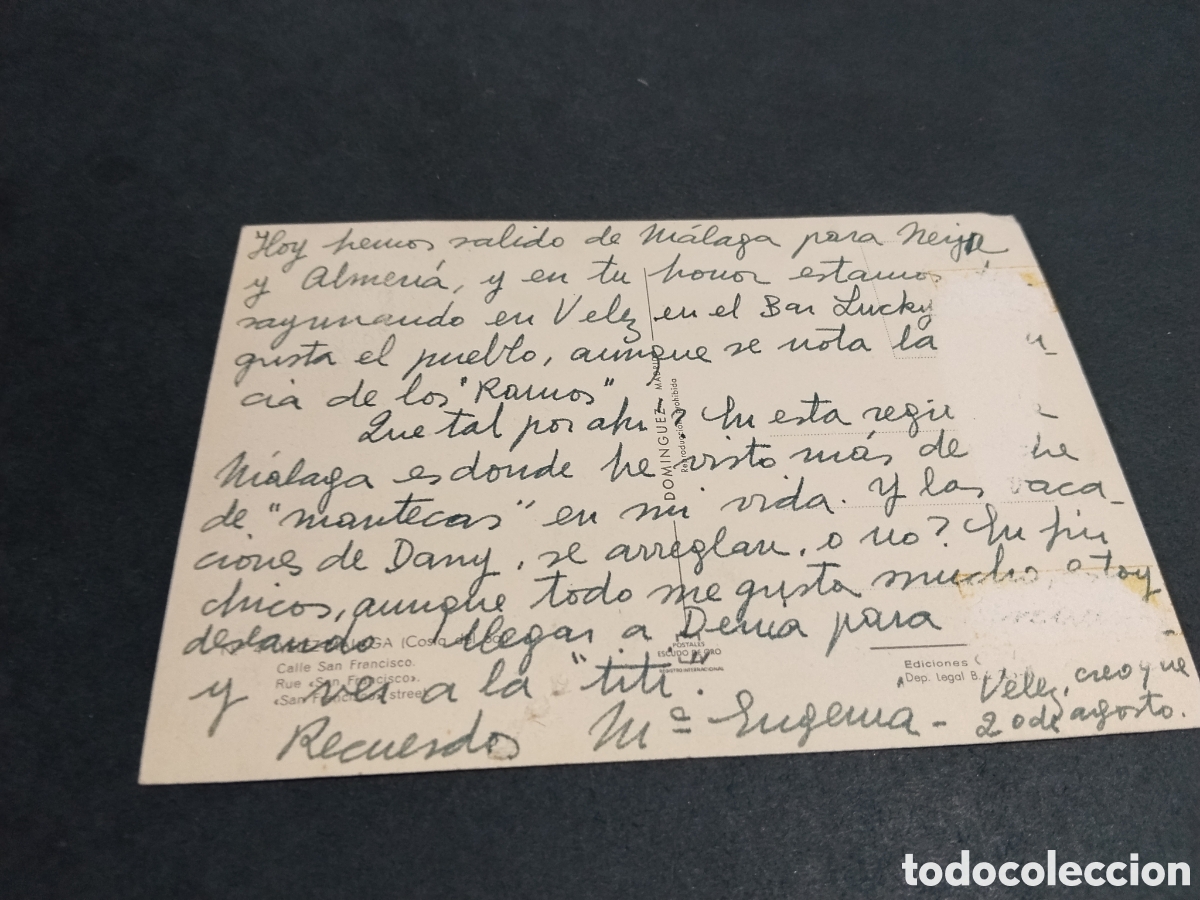 Hoy hemos salido de Málaga para
y Almería, y en tu honor estamos
sayunando en Velez en el Bar Lucky
gusta el pueblo, aunque se nota la
cia de los "Ramos"
Que tal por ahi? En esta
Málaga es donde he visto más de
de "mantecas" en mi vida. Y las vaca-
ciones de Dany, se arreglan, o no? En fin
chicos, aunque todo me gusta mucho, estoy
deseando llegar a Denia para
y ver a la "titi".
Recuerdos Mª Eugenia -
Velez, creo que
20 de agosto.
DOMINGUEZ - MADRID
Reproducción prohibida
LAGA (Costa del Sol)
Calle San Francisco.
Rue «San Francisco».
«San Francisco» street
POSTALES
ESCUDO DE ORO
REGISTRO INTERNACIONAL
Ediciones
Dep. Legal B.
todocoleccion